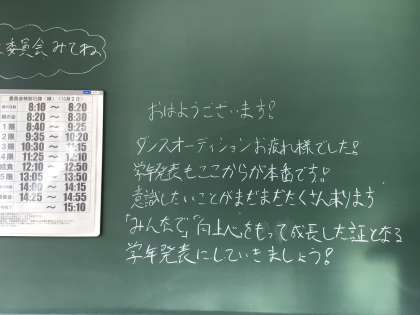 委員会みてね
8:10 ～ 8:20
8:20 ～ 8:30
1限 8:40 ～ 9:25
2限 9:35 ～ 10:20
3限 10:30 ～ 11:15
4限 11:25 ～ 12:10
12:10 ～ 12:50
5限 13:05 ～ 13:50
14:00 ～ 14:15
14:25 ～ 14:55
～ 15:10
おはようございます！
ダンスオーディションお疲れ様でした！
学年発表もここからが本番です！
意識したいことがまだまだたくさんあります
「みんなで」「向上心をもって成長した証となる
学年発表にしていきましょう！